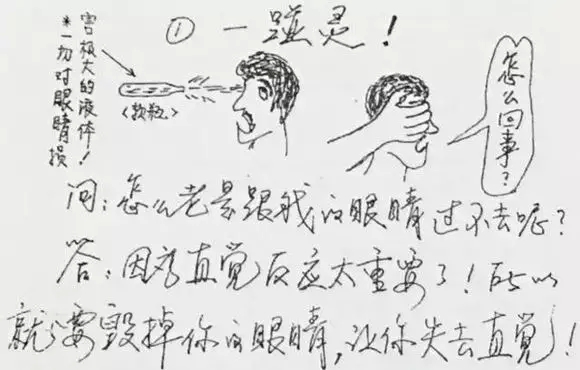 ① 一踫灵！
*一切对眼睛损
害极大的液体！
怎么回事？
问：怎么老是跟我的眼睛过不去呢？
答：因为直觉反应太重要了！所以
就要毁掉你的眼睛，让你失去直觉！